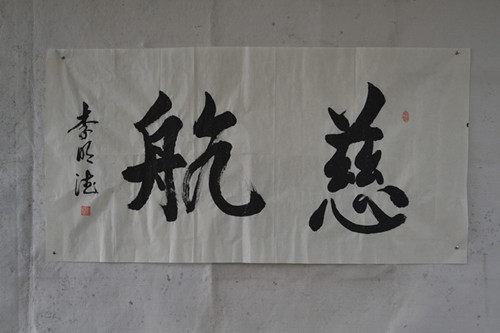 慈航
李明德